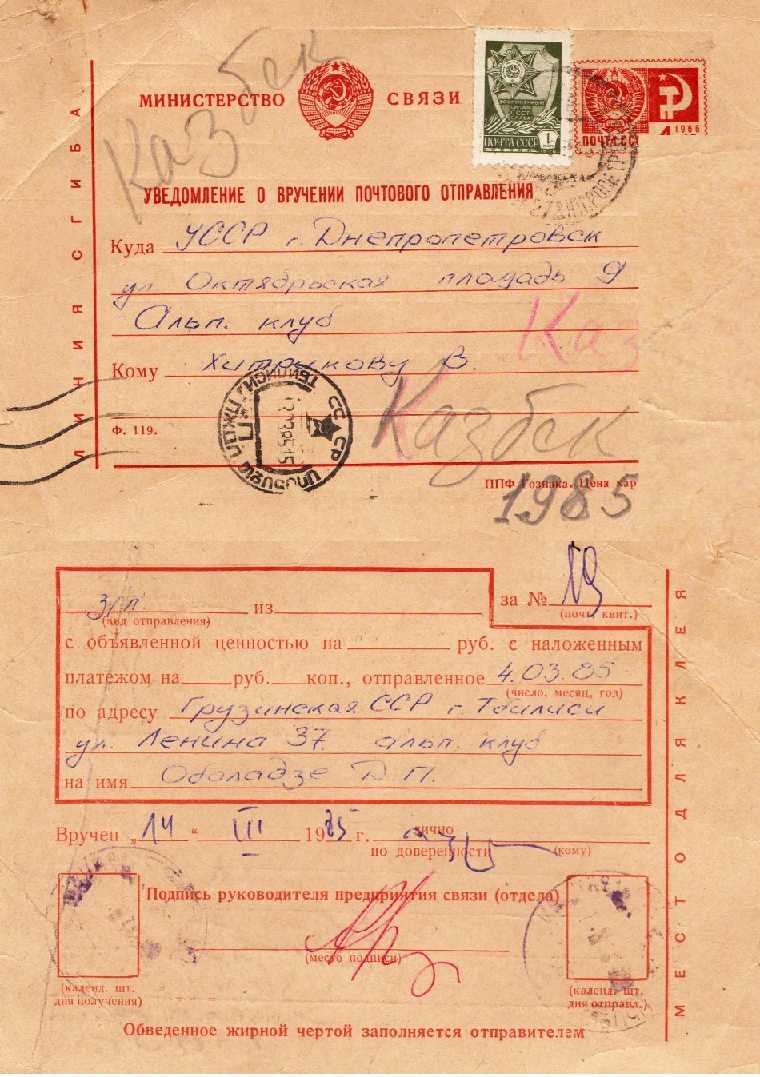 Казбек
МИНИСТЕРСТВО СВЯЗИ
1
ПОЧТА СССР
1966
ПОЧТА СС
УВЕДОМЛЕНИЕ О ВРУЧЕНИИ ПОЧТОВОГО ОТПРАВЛЕНИЯ
Куда УССР г. Днепропетровск
ул Октябрьская площадь 9
Альп. клуб
Каз
Кому Хитрикову В.
СССР
Казбек
Ф. 119.
ЛИНИЯ СГИБА
ППФ Гознака. Цена кар
1985
за № 19
(почт. квит.)
из
(вид отправления)
с объявленной ценностью на руб. с наложенным
платежом на руб. коп., отправленное 4.03.85
(число, месяц, год)
по адресу Грузинская ССР г. Тбилиси
ул. Ленина 37 альп. клуб
на имя Оболадзе Д.П.
Вручен „14“ III 1985 г. лично
по доверенности (кому)
Подпись руководителя предприятия связи (отдела)
(место подписи)
(календ. шт. дня получения)
(календ. шт. дня отправл.)
МЕСТО ДЛЯ КЛЕЯ
Обведенное жирной чертой заполняется отправителем